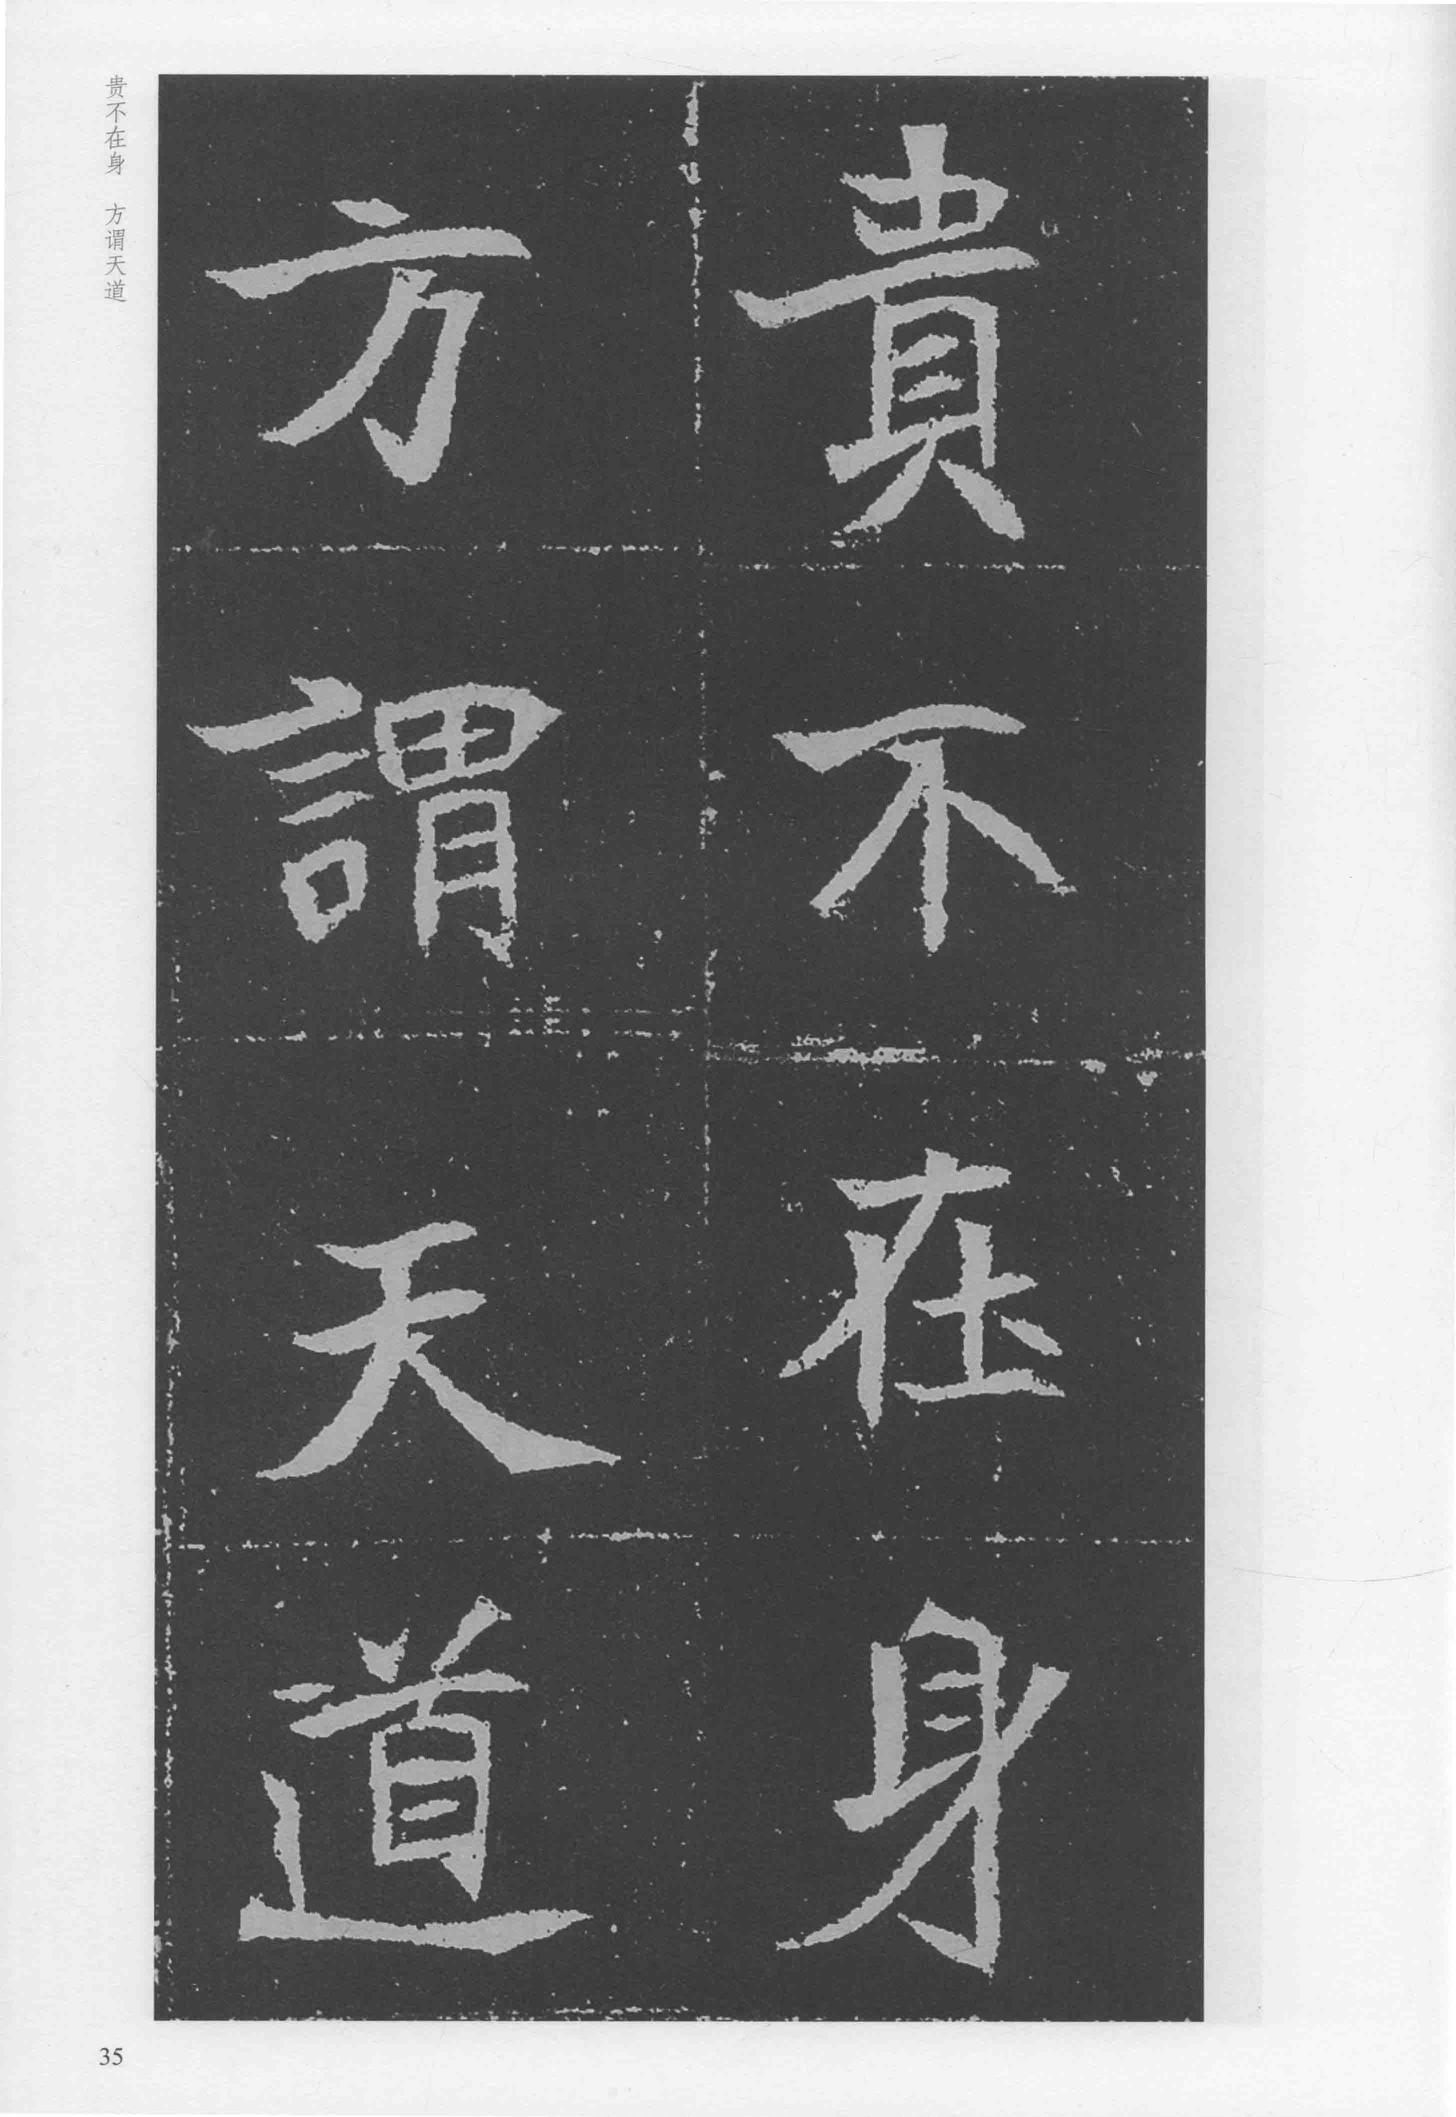 貴不在身
方謂天道
贵不在身　方谓天道
35